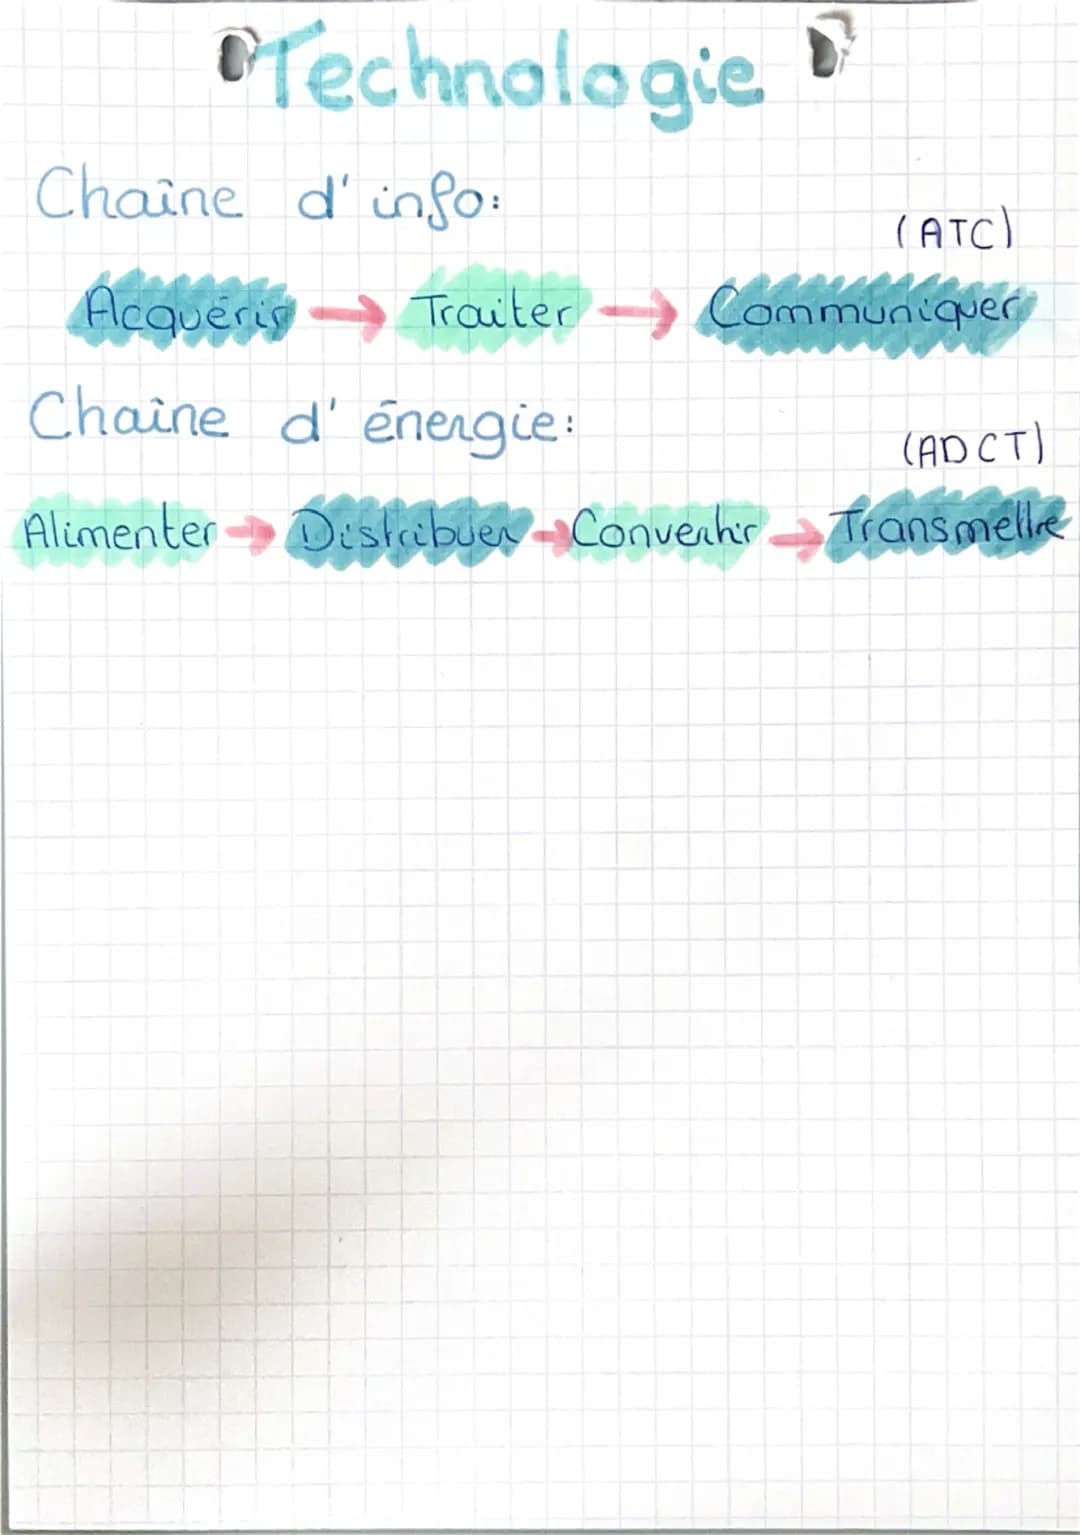 Technologie
Chaîne d'info:
(ATC)
Acquérir → Traiter → Communiquer
Chaîne d'énergie:
(ADCT)
Alimenter → Distribuer → Convertir → Transmettre